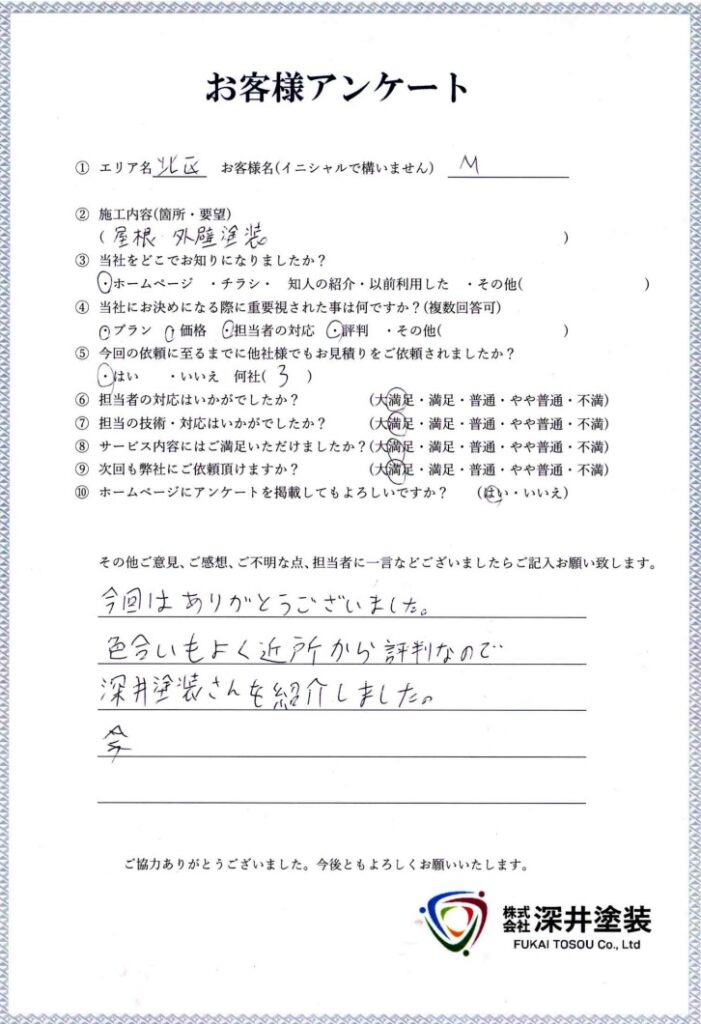 お客様アンケート
① エリア名 北区 お客様名(イニシャルで構いません) M
② 施工内容(箇所・要望)
( 屋根 外壁塗装 )
③ 当社をどこでお知りになりましたか?
・ホームページ ・チラシ・ 知人の紹介・以前利用した ・その他( )
④ 当社にお決めになる際に重要視された事は何ですか?(複数回答可)
・プラン ・価格 ・担当者の対応 ・評判 ・その他( )
⑤ 今回の依頼に至るまでに他社様でもお見積りをご依頼されましたか?
・はい ・いいえ 何社( 3 )
⑥ 担当者の対応はいかがでしたか? (大満足・満足・普通・やや普通・不満)
⑦ 担当の技術・対応はいかがでしたか? (大満足・満足・普通・やや普通・不満)
⑧ サービス内容にはご満足いただけましたか?(大満足・満足・普通・やや普通・不満)
⑨ 次回も弊社にご依頼頂けますか? (大満足・満足・普通・やや普通・不満)
⑩ ホームページにアンケートを掲載してもよろしいですか? (はい・いいえ)
その他ご意見、ご感想、ご不明な点、担当者に一言などございましたらご記入お願い致します。
今回はありがとうございました。
色合いもよく近所から評判なので
深井塗装さんを紹介しました。
ご協力ありがとうございました。今後ともよろしくお願いいたします。
株式会社 深井塗装
FUKAI TOSOU Co., Ltd